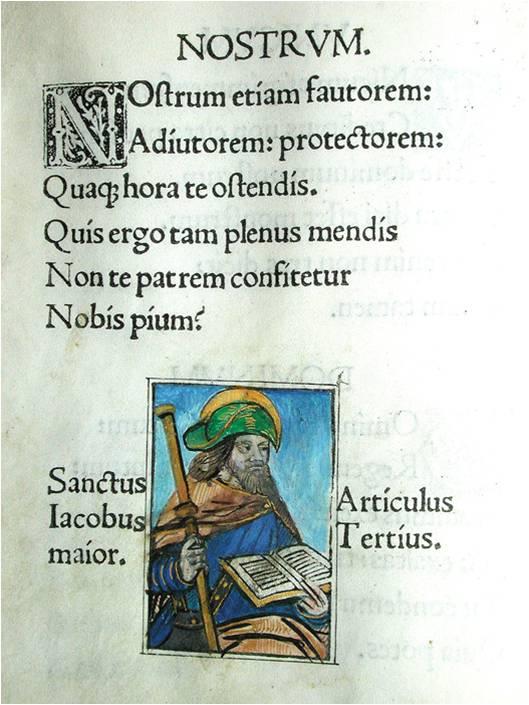 NOSTRVM.
NOſtrum etiam fautorem:
Adiutorem: protectorem:
Quaqꝫ hora te oſtendis.
Quis ergo tam plenus mendis
Non te patrem confitetur
Nobis pium?
Sanctus
Iacobus
maior.
Articulus
Tertius.